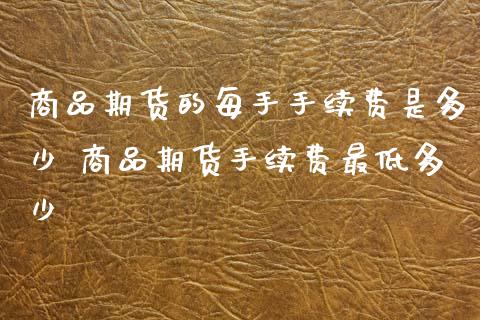 商品期货的每手手续费是多
少 商品期货手续费最低多
少